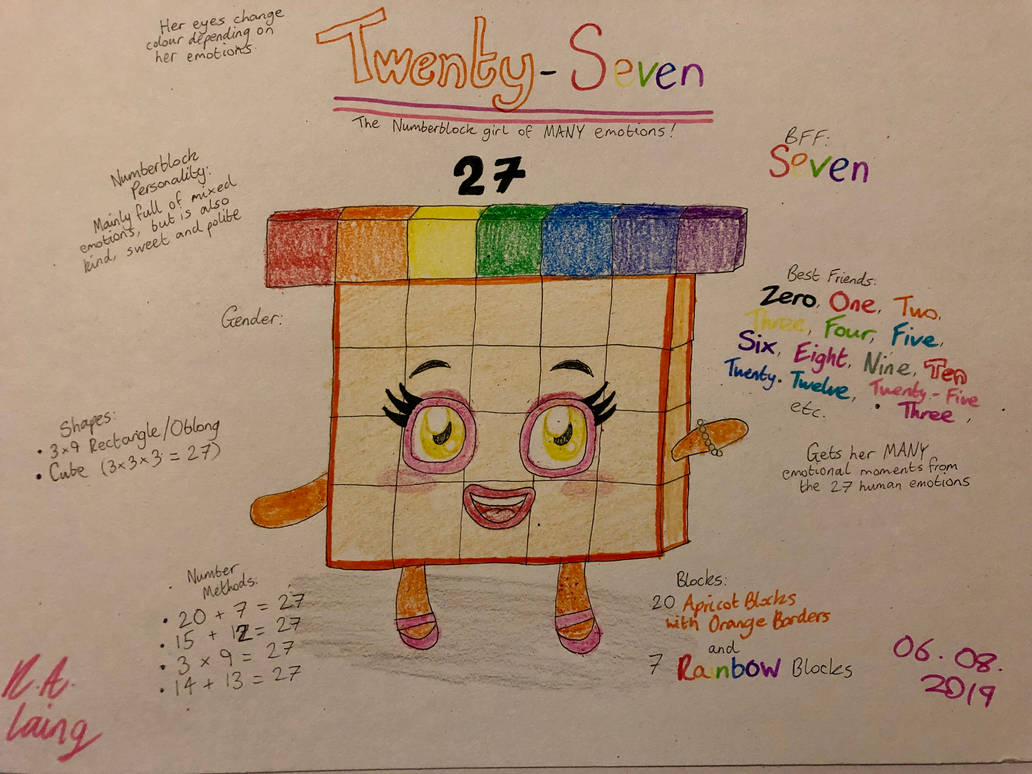 Her eyes change
colour depending on
her emotions.
Twenty-Seven
The Numberblock girl of MANY emotions!
27
BFF:
Seven
Numberblock
Personality:
Mainly full of mixed
emotions, but is also
kind, sweet and polite
Gender:
Best Friends:
Zero, One, Two,
Three, Four, Five,
Six, Eight, Nine, Ten
Twenty-Twelve, Twenty-Five
etc. Three,
Shapes:
• 3×9 Rectangle/Oblong
• Cube (3×3×3 = 27)
Gets her MANY
emotional moments from
the 27 human emotions
Number
Methods:
• 20 + 7 = 27
• 15 + 12 = 27
• 3 × 9 = 27
• 14 + 13 = 27
Blocks:
20 Apricot Blocks
with Orange Borders
and
7 Rainbow Blocks
R.A.
Laing
06.08.
2019